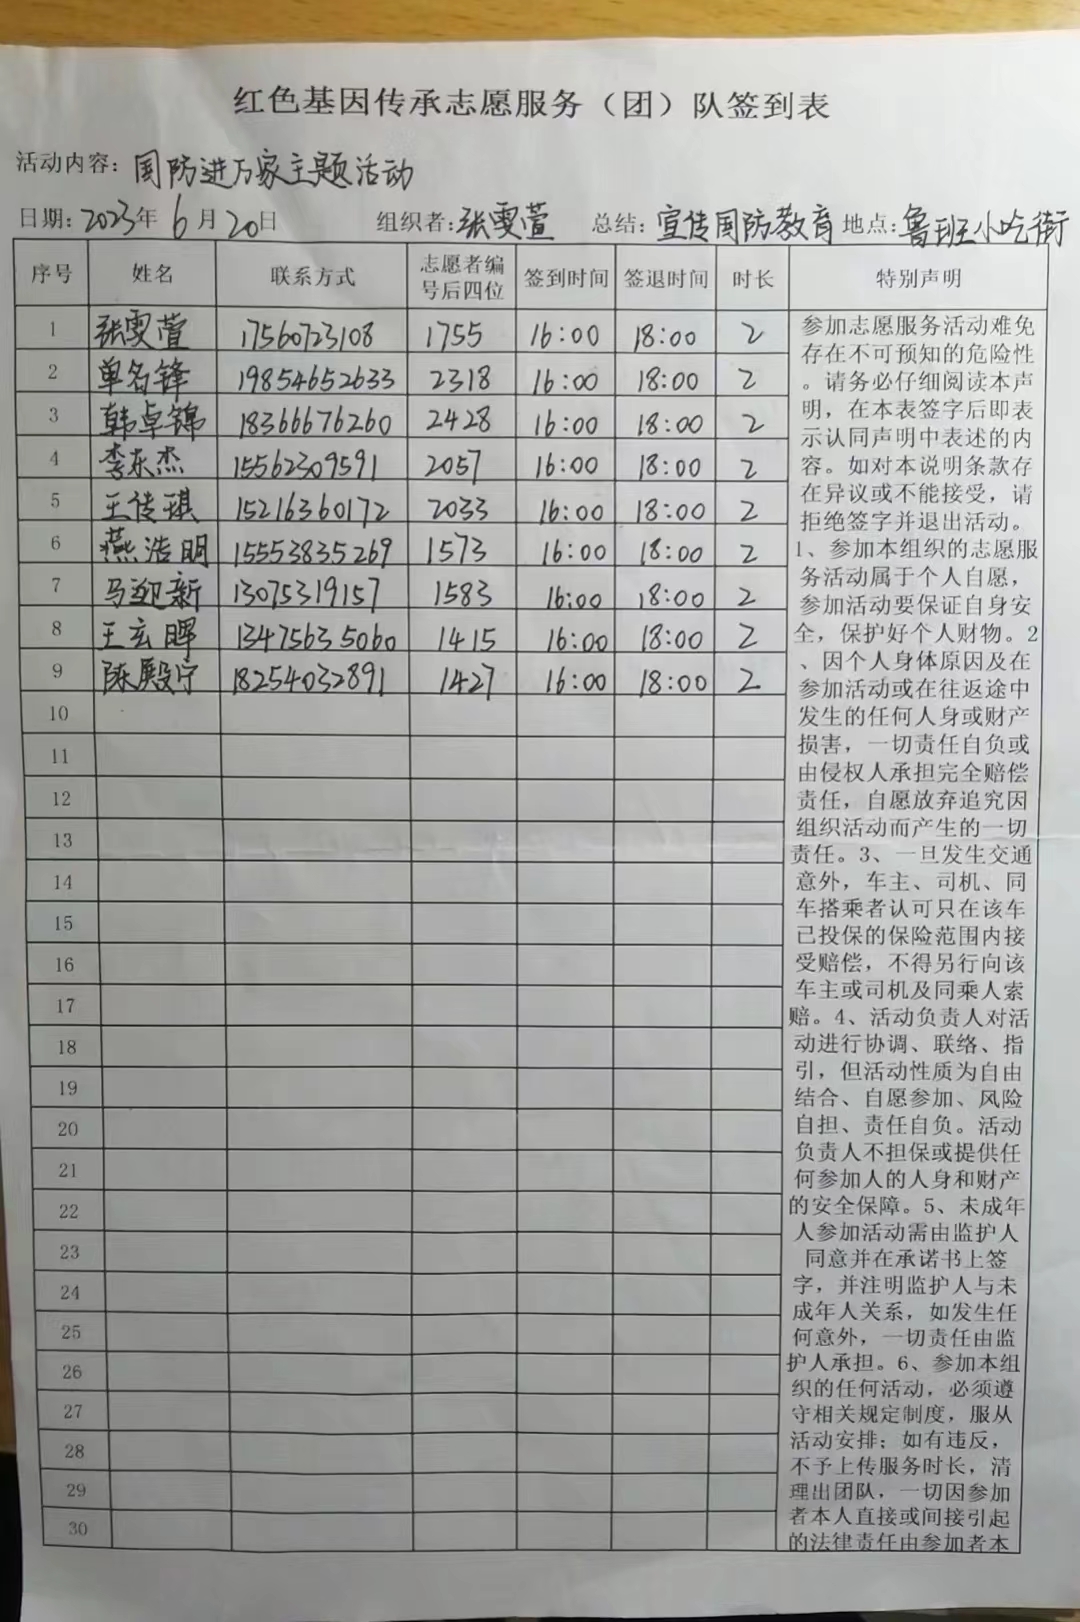 红色基因传承志愿服务（团）队签到表
活动内容：国防进万家主题活动
日期：2023年 6 月 20日 组织者：张雯萱 总结：宣传国防教育 地点：鲁班小吃街
序号 姓名 联系方式 志愿者编号后四位 签到时间 签退时间 时长 特别声明
1 张雯萱 17560723108 1755 16:00 18:00 2
2 单名锋 19854652633 2318 16:00 18:00 2
3 韩卓锦 18366676260 2428 16:00 18:00 2
4 李东杰 15562309591 2057 16:00 18:00 2
5 王传琪 15216360172 2033 16:00 18:00 2
6 燕浩明 15553835269 1573 16:00 18:00 2
7 马迎新 13075319157 1583 16:00 18:00 2
8 王玄晖 13475635060 1415 16:00 18:00 2
9 陈殿宁 18254032891 1427 16:00 18:00 2
10
11
12
13
14
15
16
17
18
19
20
21
22
23
24
25
26
27
28
29
30
参加志愿服务活动难免
存在不可预知的危险性
。请务必仔细阅读本声
明，在本表签字后即表
示认同声明中表述的内
容。如对本说明条款存
在异议或不能接受，请
拒绝签字并退出活动。
1、参加本组织的志愿服
务活动属于个人自愿，
参加活动要保证自身安
全，保护好个人财物。2
、因个人身体原因及在
参加活动或在往返途中
发生的任何人身或财产
损害，一切责任自负或
由侵权人承担完全赔偿
责任，自愿放弃追究因
组织活动而产生的一切
责任。3、一旦发生交通
意外，车主、司机、同
车搭乘者认可只在该车
已投保的保险范围内接
受赔偿，不得另行向该
车主或司机及同乘人索
赔。4、活动负责人对活
动进行协调、联络、指
引，但活动性质为自由
结合、自愿参加、风险
自担、责任自负。活动
负责人不担保或提供任
何参加人的人身和财产
的安全保障。5、未成年
人参加活动需由监护人
同意并在承诺书上签
字，并注明监护人与未
成年人关系，如发生任
何意外，一切责任由监
护人承担。6、参加本组
织的任何活动，必须遵
守相关规定制度，服从
活动安排；如有违反，
不予上传服务时长，清
理出团队，一切因参加
者本人直接或间接引起
的法律责任由参加者本